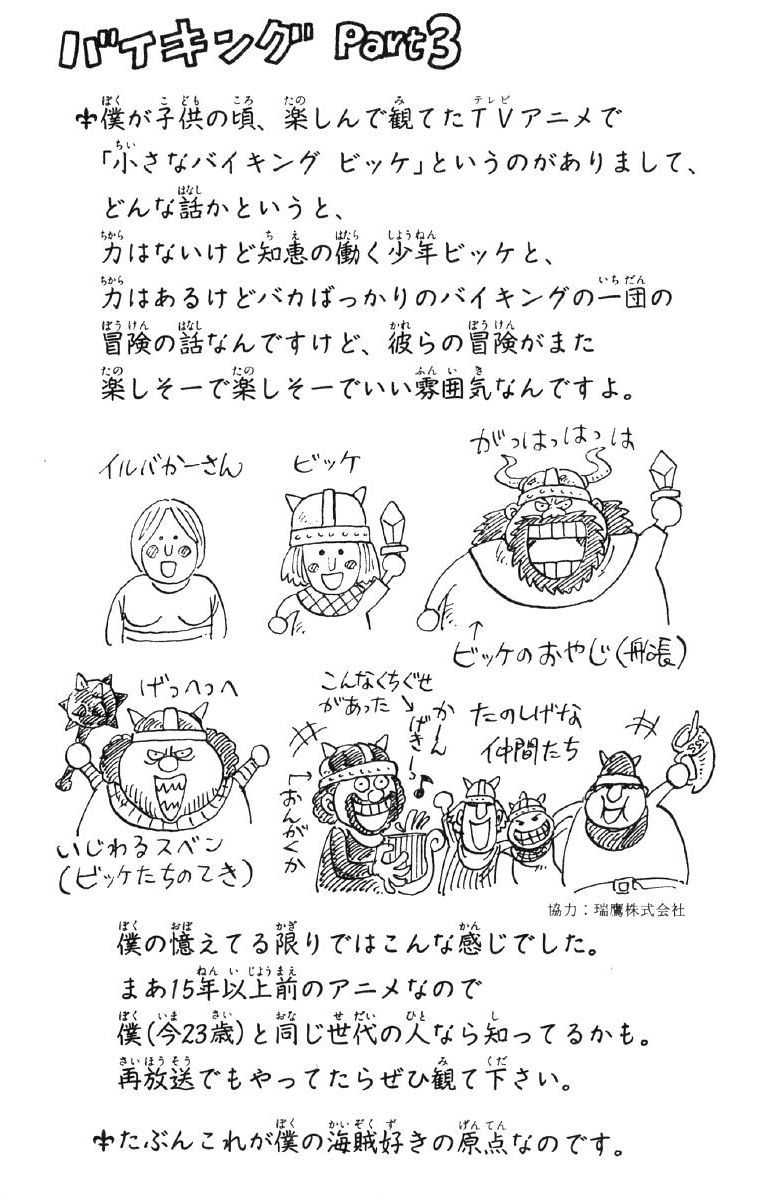 バイキング Part3
僕が子供の頃、楽しんで観てたTVアニメで
「小さなバイキング ビッケ」というのがありまして、
どんな話かというと、
力はないけど知恵の働く少年ビッケと、
力はあるけどバカばっかりのバイキングの一団の
冒険の話なんですけど、彼らの冒険がまた
楽しそーで楽しそーでいい雰囲気なんですよ。
イルバかーさん
ビッケ
がっはっはっは
↑
ビッケのおやじ(船長)
げっへっへ
いじわるスベン
(ビッケたちのてき)
こんなくちぐせ
があった
かーん
げきーっ♪
←おんがくか
たのしげな
仲間たち
協力：瑞鷹株式会社
僕の憶えてる限りではこんな感じでした。
まあ15年以上前のアニメなので
僕(今23歳)と同じ世代の人なら知ってるかも。
再放送でもやってたらぜひ観て下さい。
たぶんこれが僕の海賊好きの原点なのです。